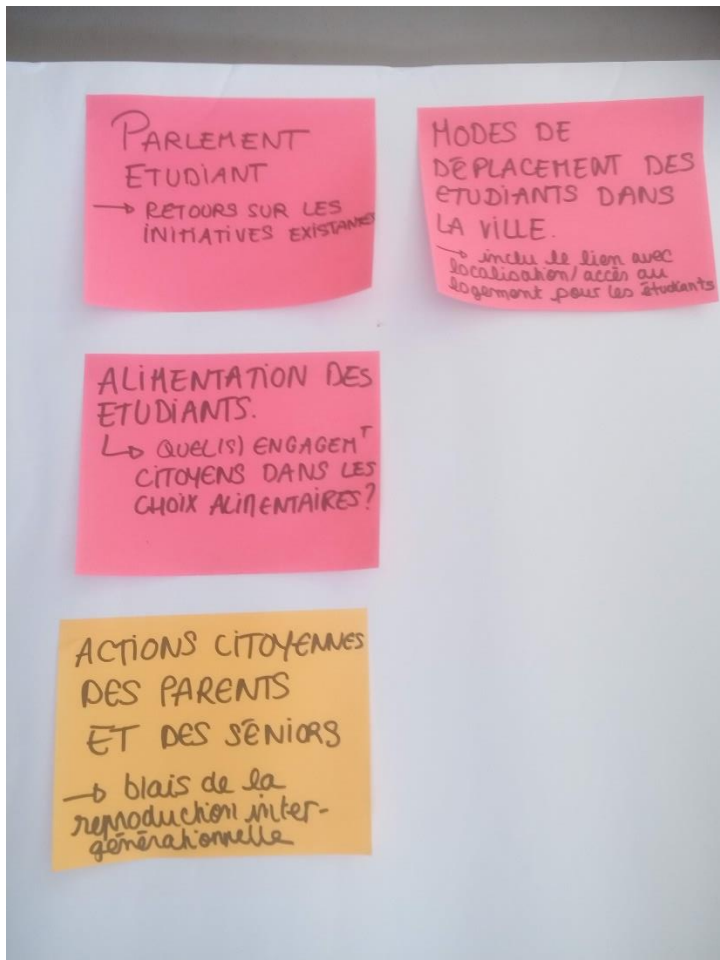 PARLEMENT
ETUDIANT
→ RETOURS SUR LES
INITIATIVES EXISTANTES
MODES DE
DÉPLACEMENT DES
ETUDIANTS DANS
LA VILLE.
→ inclu le lien avec
localisation/accès au
logement pour les étudiants
ALIMENTATION DES
ETUDIANTS.
↳ QUEL(S) ENGAGEMT
CITOYENS DANS LES
CHOIX ALIMENTAIRES?
ACTIONS CITOYENNES
DES PARENTS
ET DES SÉNIORS
→ biais de la
reproduction inter-
générationnelle